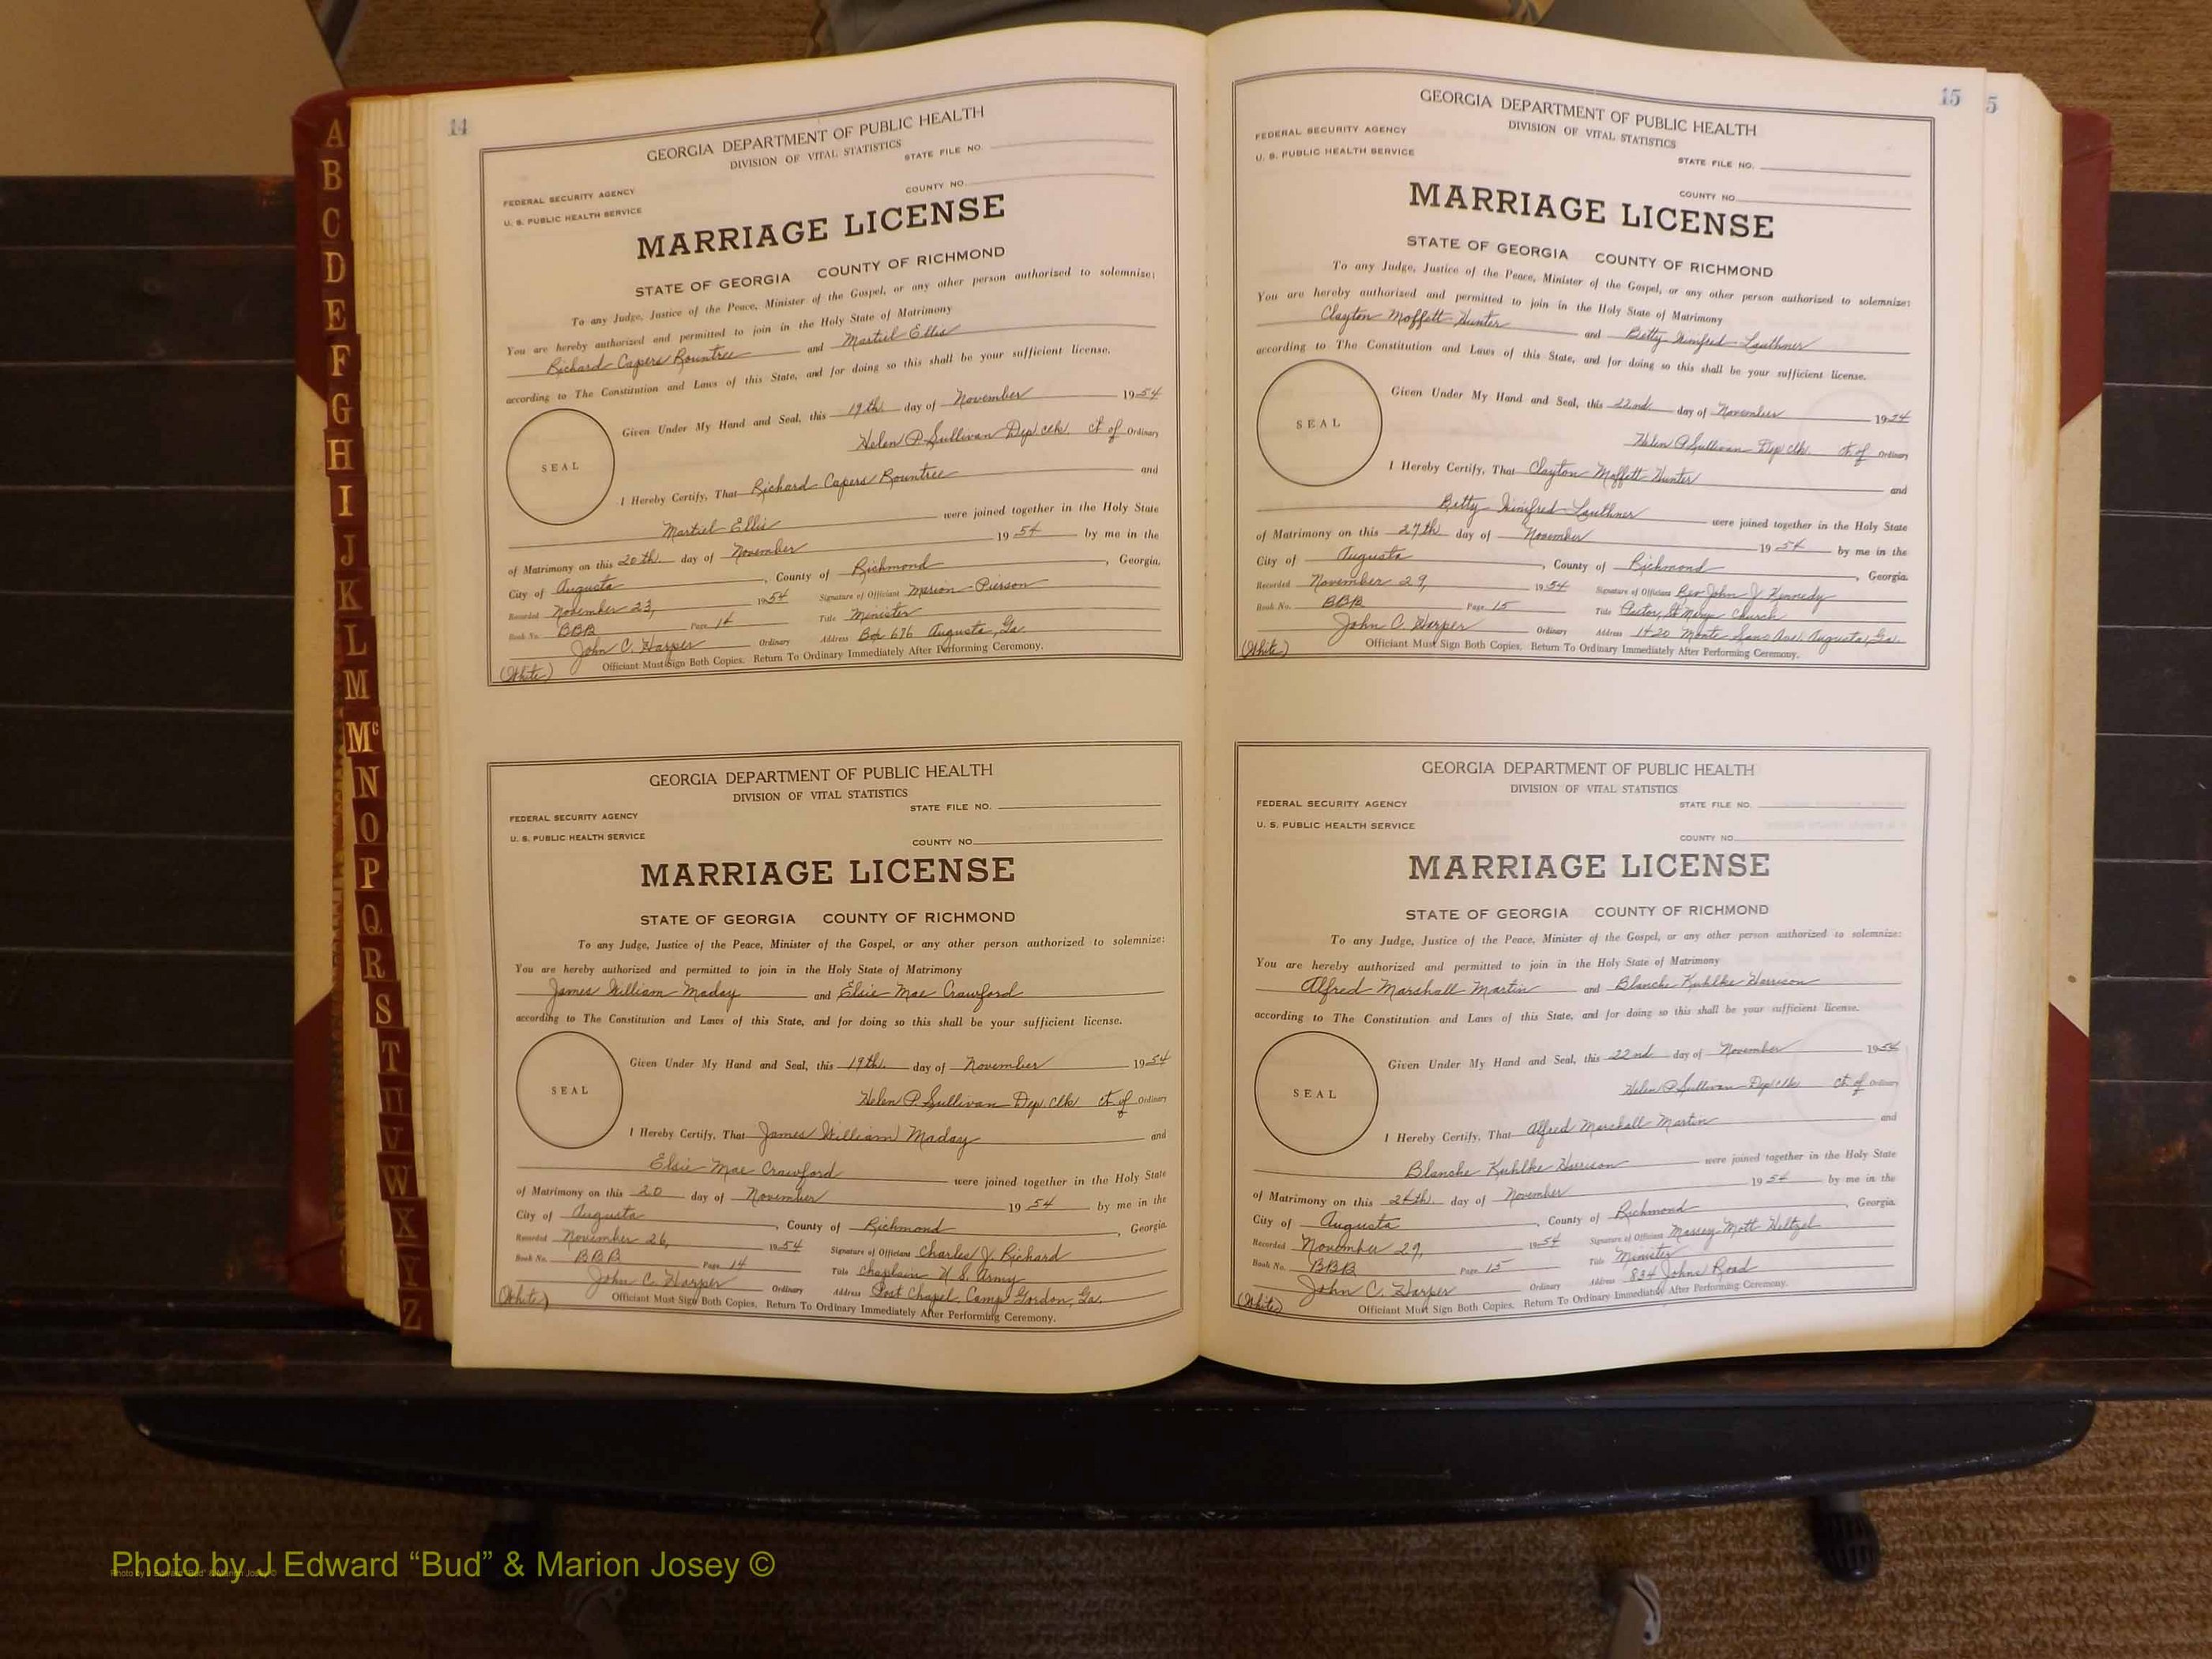 A
B
C
D
E
F
G
H
I
J
K
L
M
Mc
N
O
P
Q
R
S
T
U
V
W
X
Y
Z
14
GEORGIA DEPARTMENT OF PUBLIC HEALTH
DIVISION OF VITAL STATISTICS
STATE FILE NO.
FEDERAL SECURITY AGENCY
COUNTY NO.
U. S. PUBLIC HEALTH SERVICE
MARRIAGE LICENSE
STATE OF GEORGIA COUNTY OF RICHMOND
To any Judge, Justice of the Peace, Minister of the Gospel, or any other person authorized to solemnize:
You are hereby authorized and permitted to join in the Holy State of Matrimony
Richard Capers Rountree and Martiel Ellis
according to The Constitution and Laws of this State, and for doing so this shall be your sufficient license.
Given Under My Hand and Seal, this 19th. day of November 1954
Helen P. Sullivan Dep. clk. ct of Ordinary
SEAL
I Hereby Certify, That Richard Capers Rountree and
Martiel Ellis were joined together in the Holy State
of Matrimony on this 20th. day of November 1954 by me in the
City of Augusta, County of Richmond, Georgia.
Recorded November 23, 1954 Signature of Officiant Marion Pierson
Book No. BBB Page 14 Title Minister
John C. Harper Ordinary Address Box 676 Augusta, Ga.
(White) Officiant Must Sign Both Copies. Return To Ordinary Immediately After Performing Ceremony.
GEORGIA DEPARTMENT OF PUBLIC HEALTH
DIVISION OF VITAL STATISTICS
STATE FILE NO.
FEDERAL SECURITY AGENCY
U. S. PUBLIC HEALTH SERVICE
COUNTY NO.
MARRIAGE LICENSE
STATE OF GEORGIA COUNTY OF RICHMOND
To any Judge, Justice of the Peace, Minister of the Gospel, or any other person authorized to solemnize:
You are hereby authorized and permitted to join in the Holy State of Matrimony
James William Maday and Elsie Mae Crawford
according to The Constitution and Laws of this State, and for doing so this shall be your sufficient license.
Given Under My Hand and Seal, this 19th. day of November 1954
Helen P. Sullivan Dep. Clk ct of Ordinary
SEAL
I Hereby Certify, That James William Maday and
Elsie Mae Crawford were joined together in the Holy State
of Matrimony on this 20 day of November 1954 by me in the
City of Augusta, County of Richmond, Georgia
Recorded November 26, 1954 Signature of Officiant Charles J. Richard
Book No. BBB Page 14 Title Chaplain U S. Army
John C. Harper Ordinary Address Post Chapel, Camp Gordon, Ga.
(White) Officiant Must Sign Both Copies. Return To Ordinary Immediately After Performing Ceremony.
15
5
GEORGIA DEPARTMENT OF PUBLIC HEALTH
DIVISION OF VITAL STATISTICS
FEDERAL SECURITY AGENCY
STATE FILE NO.
U. S. PUBLIC HEALTH SERVICE
COUNTY NO.
MARRIAGE LICENSE
STATE OF GEORGIA COUNTY OF RICHMOND
To any Judge, Justice of the Peace, Minister of the Gospel, or any other person authorized to solemnize:
You are hereby authorized and permitted to join in the Holy State of Matrimony
Clayton Moffett Hunter and Betty Winifred Lauthner
according to The Constitution and Laws of this State, and for doing so this shall be your sufficient license.
Given Under My Hand and Seal, this 22nd day of November 1954
Helen P Sullivan Dep clk. ct. of Ordinary
SEAL
I Hereby Certify, That Clayton Moffett Hunter and
Betty Winifred Lauthner were joined together in the Holy State
of Matrimony on this 27th day of November 1954 by me in the
City of Augusta, County of Richmond, Georgia.
Recorded November 29, 1954 Signature of Officiant Rev John J Kennedy
Book No. BBB Page 15 Title Pastor, St Marys Church
John C. Harper Ordinary Address 1420 Monte Sano Ave. Augusta, Ga.
(White) Officiant Must Sign Both Copies. Return To Ordinary Immediately After Performing Ceremony.
GEORGIA DEPARTMENT OF PUBLIC HEALTH
DIVISION OF VITAL STATISTICS
FEDERAL SECURITY AGENCY
STATE FILE NO.
U. S. PUBLIC HEALTH SERVICE
COUNTY NO.
MARRIAGE LICENSE
STATE OF GEORGIA COUNTY OF RICHMOND
To any Judge, Justice of the Peace, Minister of the Gospel, or any other person authorized to solemnize:
You are hereby authorized and permitted to join in the Holy State of Matrimony
Alfred Marshall Martin and Blanche Kuhlke Harrison
according to The Constitution and Laws of this State, and for doing so this shall be your sufficient license.
Given Under My Hand and Seal, this 22nd day of November 1954
Helen P. Sullivan Dep clk ct. of Ordinary
SEAL
I Hereby Certify, That Alfred Marshall Martin and
Blanche Kuhlke Harrison were joined together in the Holy State
of Matrimony on this day of November 1954 by me in the
City of Augusta, County of Richmond, Georgia.
Recorded November 29, 1954 Signature of Officiant Massey Mott Heltzel
Book No. BBB Page 15 Title Minister
John C. Harper Ordinary Address 834 Johns Road
(White) Officiant Must Sign Both Copies. Return To Ordinary Immediately After Performing Ceremony.
Photo by J Edward “Bud” & Marion Josey ©
Photo by J Edward "Bud" & Marion Josey ©